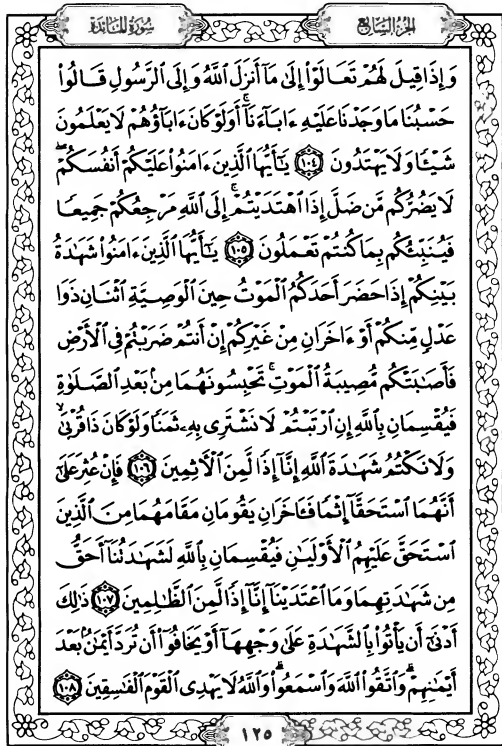 سُورَةُ المَائدَة
الجزءُ السَّابِع
وَإِذَا قِيلَ لَهُمْ تَعَالَوْا۟ إِلَىٰ مَآ أَنزَلَ ٱللَّهُ وَإِلَى ٱلرَّسُولِ قَالُوا۟
حَسْبُنَا مَا وَجَدْنَا عَلَيْهِ ءَابَآءَنَآۚ أَوَلَوْ كَانَ ءَابَآؤُهُمْ لَا يَعْلَمُونَ
شَيْـًٔا وَلَا يَهْتَدُونَ ١٠٤ يَـٰٓأَيُّهَا ٱلَّذِينَ ءَامَنُوا۟ عَلَيْكُمْ أَنفُسَكُمْۖ
لَا يَضُرُّكُم مَّن ضَلَّ إِذَا ٱهْتَدَيْتُمْۚ إِلَى ٱللَّهِ مَرْجِعُكُمْ جَمِيعًا
فَيُنَبِّئُكُم بِمَا كُنتُمْ تَعْمَلُونَ ١٠٥ يَـٰٓأَيُّهَا ٱلَّذِينَ ءَامَنُوا۟ شَهَـٰدَةُ
بَيْنِكُمْ إِذَا حَضَرَ أَحَدَكُمُ ٱلْمَوْتُ حِينَ ٱلْوَصِيَّةِ ٱثْنَانِ ذَوَا
عَدْلٍ مِّنكُمْ أَوْ ءَاخَرَانِ مِنْ غَيْرِكُمْ إِنْ أَنتُمْ ضَرَبْتُمْ فِى ٱلْأَرْضِ
فَأَصَـٰبَتْكُم مُّصِيبَةُ ٱلْمَوْتِۚ تَحْبِسُونَهُمَا مِنۢ بَعْدِ ٱلصَّلَوٰةِ
فَيُقْسِمَانِ بِٱللَّهِ إِنِ ٱرْتَبْتُمْ لَا نَشْتَرِى بِهِۦ ثَمَنًا وَلَوْ كَانَ ذَا قُرْبَىٰۙ
وَلَا نَكْتُمُ شَهَـٰدَةَ ٱللَّهِ إِنَّآ إِذًا لَّمِنَ ٱلْـَٔاثِمِينَ ١٠٦ فَإِنْ عُثِرَ عَلَىٰٓ
أَنَّهُمَا ٱسْتَحَقَّآ إِثْمًا فَـَٔاخَرَانِ يَقُومَانِ مَقَامَهُمَا مِنَ ٱلَّذِينَ
ٱسْتَحَقَّ عَلَيْهِمُ ٱلْأَوْلَيَـٰنِ فَيُقْسِمَانِ بِٱللَّهِ لَشَهَـٰدَتُنَآ أَحَقُّ
مِن شَهَـٰدَتِهِمَا وَمَا ٱعْتَدَيْنَآ إِنَّآ إِذًا لَّمِنَ ٱلظَّـٰلِمِينَ ١٠٧ ذَٰلِكَ
أَدْنَىٰٓ أَن يَأْتُوا۟ بِٱلشَّهَـٰدَةِ عَلَىٰ وَجْهِهَآ أَوْ يَخَافُوٓا۟ أَن تُرَدَّ أَيْمَـٰنٌۢ بَعْدَ
أَيْمَـٰنِهِمْۗ وَٱتَّقُوا۟ ٱللَّهَ وَٱسْمَعُوا۟ۗ وَٱللَّهُ لَا يَهْدِى ٱلْقَوْمَ ٱلْفَـٰسِقِينَ ١٠٨
١٢٥